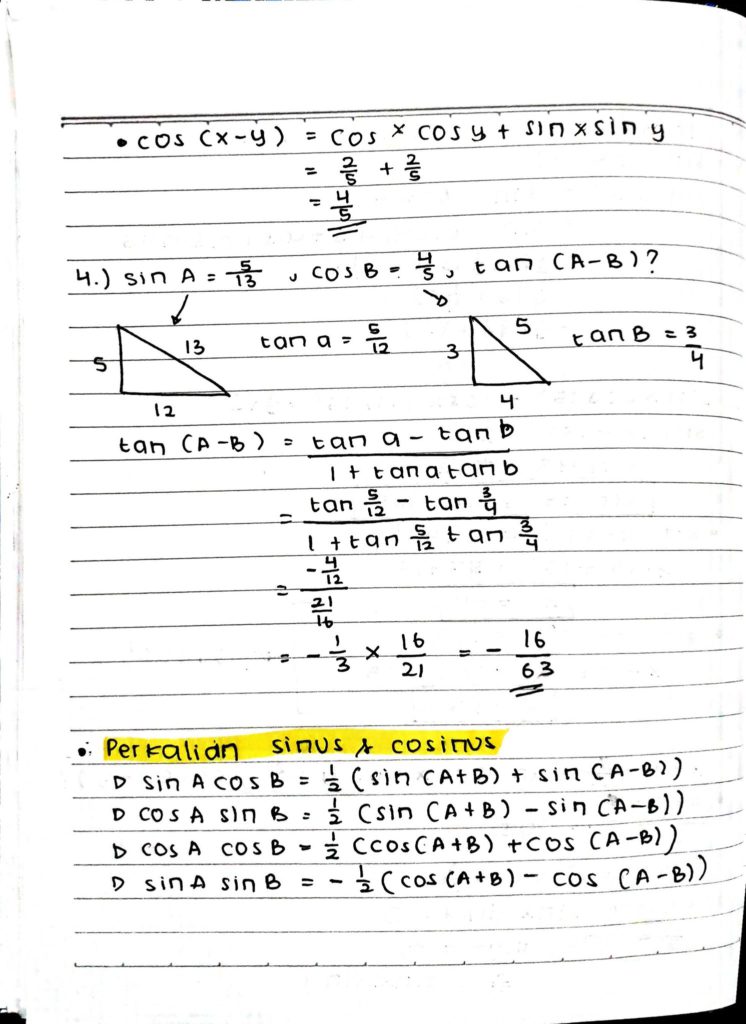 • cos (x-y) = cos x cos y + sin x sin y
= 2/5 + 2/5
= 4/5
4.) sin A = 5/13 , cos B = 4/5 , tan (A-B)?
5 13 12 tan a = 5/12 3 5 4 tan B = 3/4
tan (A-B) = (tan a - tan b)/(1 + tan a tan b)
= (tan 5/12 - tan 3/4)/(1 + tan 5/12 tan 3/4)
= (-4/12)/(21/16)
= - 1/3 × 16/21 = - 16/63
Perkalian sinus & cosinus
▷ sin A cos B = 1/2 (sin (A+B) + sin (A-B))
▷ cos A sin B = 1/2 (sin (A+B) - sin (A-B))
▷ cos A cos B = 1/2 (cos (A+B) + cos (A-B))
▷ sin A sin B = - 1/2 (cos (A+B) - cos (A-B))